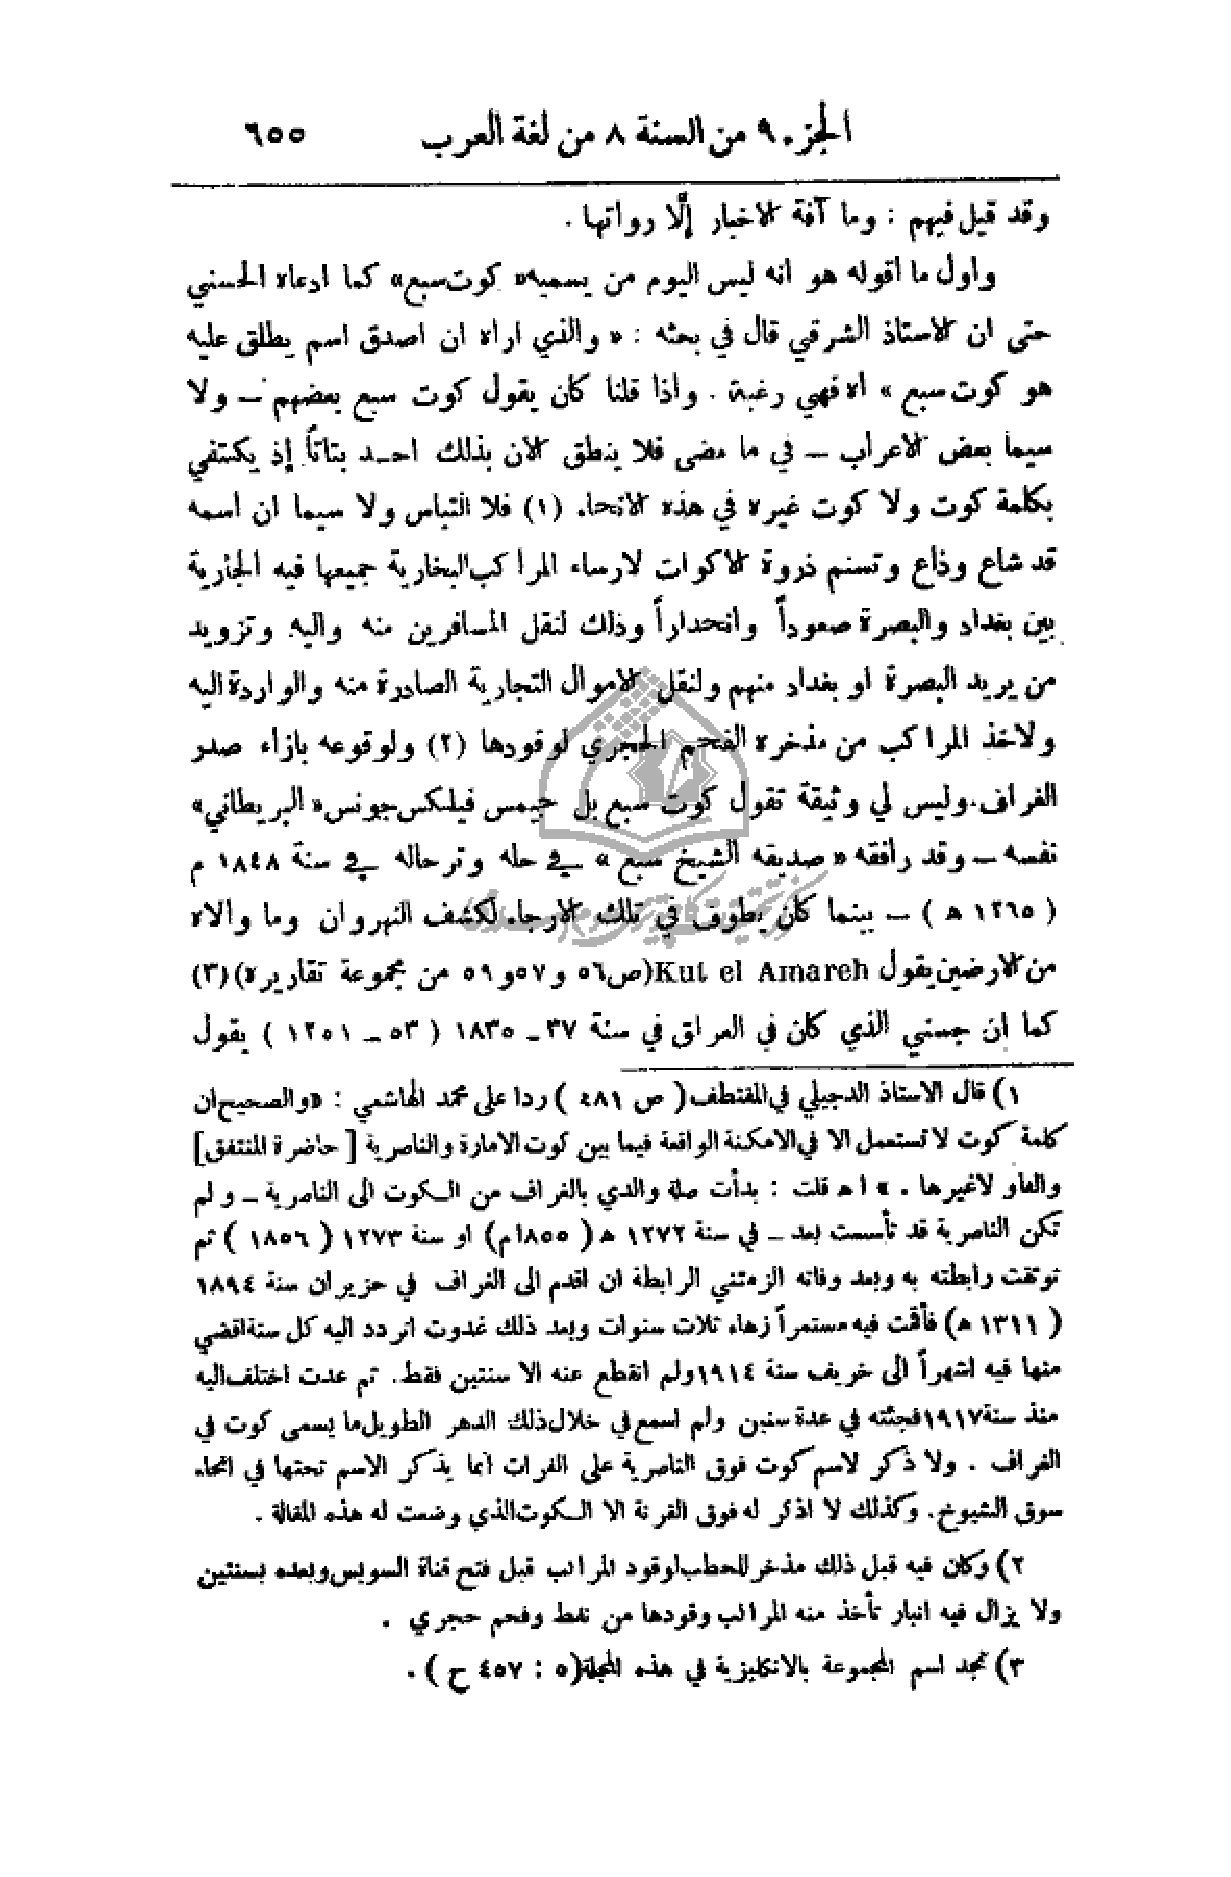 الجزء ٩ من السنة ٨ من لغة العرب ٦٥٥
وقد قيل فيهم : وما آفة الاخبار إلّا رواتها .
واول ما اقوله هو انه ليس اليوم من يسميه « كوت سبع » كما ادعاه الحسني
حتى ان الاستاذ الشرقي قال في بحثه : « والذي اراه ان اصدق اسم يطلق عليه
هو كوت سبع » اه فهي رغبة . واذا قلنا كان يقول كوت سبع بعضهم – ولا
سيما بعض الاعراب – في ما مضى فلا ينطق الآن بذلك احـد بتاتاً إذ يكتفي
بكلمة كوت ولا كوت غيره في هذه الانحاء (١) فلا التباس ولا سيما ان اسمه
قد شاع وذاع وتسنم ذروة الاكوات لارساء المراكب البخارية جميعها فيه الجارية
بين بغداد والبصرة صعوداً وانحداراً وذلك لنقل المسافرين منه واليه وتزويد
من يريد البصرة او بغداد منهم ولنقل الاموال التجارية الصادرة منه والواردة اليه
ولاخذ المراكب من مذخره الفحم الحجري لوقودها (٢) ولوقوعه بازاء صدر
الغراف. وليس لي وثيقة تقول كوت سبع بل جيمس فيلكس جونس « البريطاني »
نفسه – وقد رافقه « صديقه الشيخ سبع » في حله وترحاله في سنة ١٨٤٨ م
( ١٢٦٥ ه ) – بينما كان يطوف في تلك الارجاء لكشف النهروان وما والاه
من الارضين يقول Kut el Amareh (ص ٥٦ و ٥٧ و ٥٩ من مجموعة تقاريره) (٣)
كما ان جسني الذي كان في العراق في سنة ٣٧ – ١٨٣٥ ( ٥٣ – ١٢٥١ ) يقول
١) قال الاستاذ الدجيلي في المقتطف ( ص ٤٨١ ) ردا على محمد الهاشمي : « والصحيح ان
كلمة كوت لا تستعمل الا في الامكنة الواقعة فيما بين كوت الامارة والناصرية [ حاضرة المنتفق ]
والفاو لاغيرها . » ا ه قلت : بدأت صلة والدي بالغراف من الكوت الى الناصرية – ولم
تكن الناصرية قد تأسست بعد – في سنة ١٢٧٢ ه ( ١٨٥٥م) او سنة ١٢٧٣ ( ١٨٥٦ ) ثم
توثقت رابطته به وبعد وفاته الزمتني الرابطة ان اقدم الى الغراف في حزيران سنة ١٨٩٤
( ١٣١١ ه ) فأقمت فيه مستمراً زهاء ثلاث سنوات وبعد ذلك غدوت اتردد اليه كل سنة اقضي
منها فيه اشهراً الى خريف سنة ١٩١٤ ولم انقطع عنه الا سنتين فقط. ثم عدت اختلف اليه
منذ سنة ١٩١٧ فجئته في عدة سنين ولم اسمع في خلال ذلك الدهر الطويل ما يسمى كوت في
الغراف . ولا ذكر لاسم كوت فوق الناصرية على الفرات انما يذكر الاسم تحتها في انحاء
سوق الشيوخ. وكذلك لا اذكر له فوق القرنة الا الكوت الذي وضعت له هذه المقالة .
٢) وكان فيه قبل ذلك مذخر للحطب لوقود المراكب قبل فتح قناة السويس وبعده بسنتين
ولا يزال فيه انبار تأخذ منه المراكب وقودها من نفط وفحم حجري .
٣) تجد اسم المجموعة بالانكليزية في هذه المجلة (٥ : ٤٥٧ ح ) .